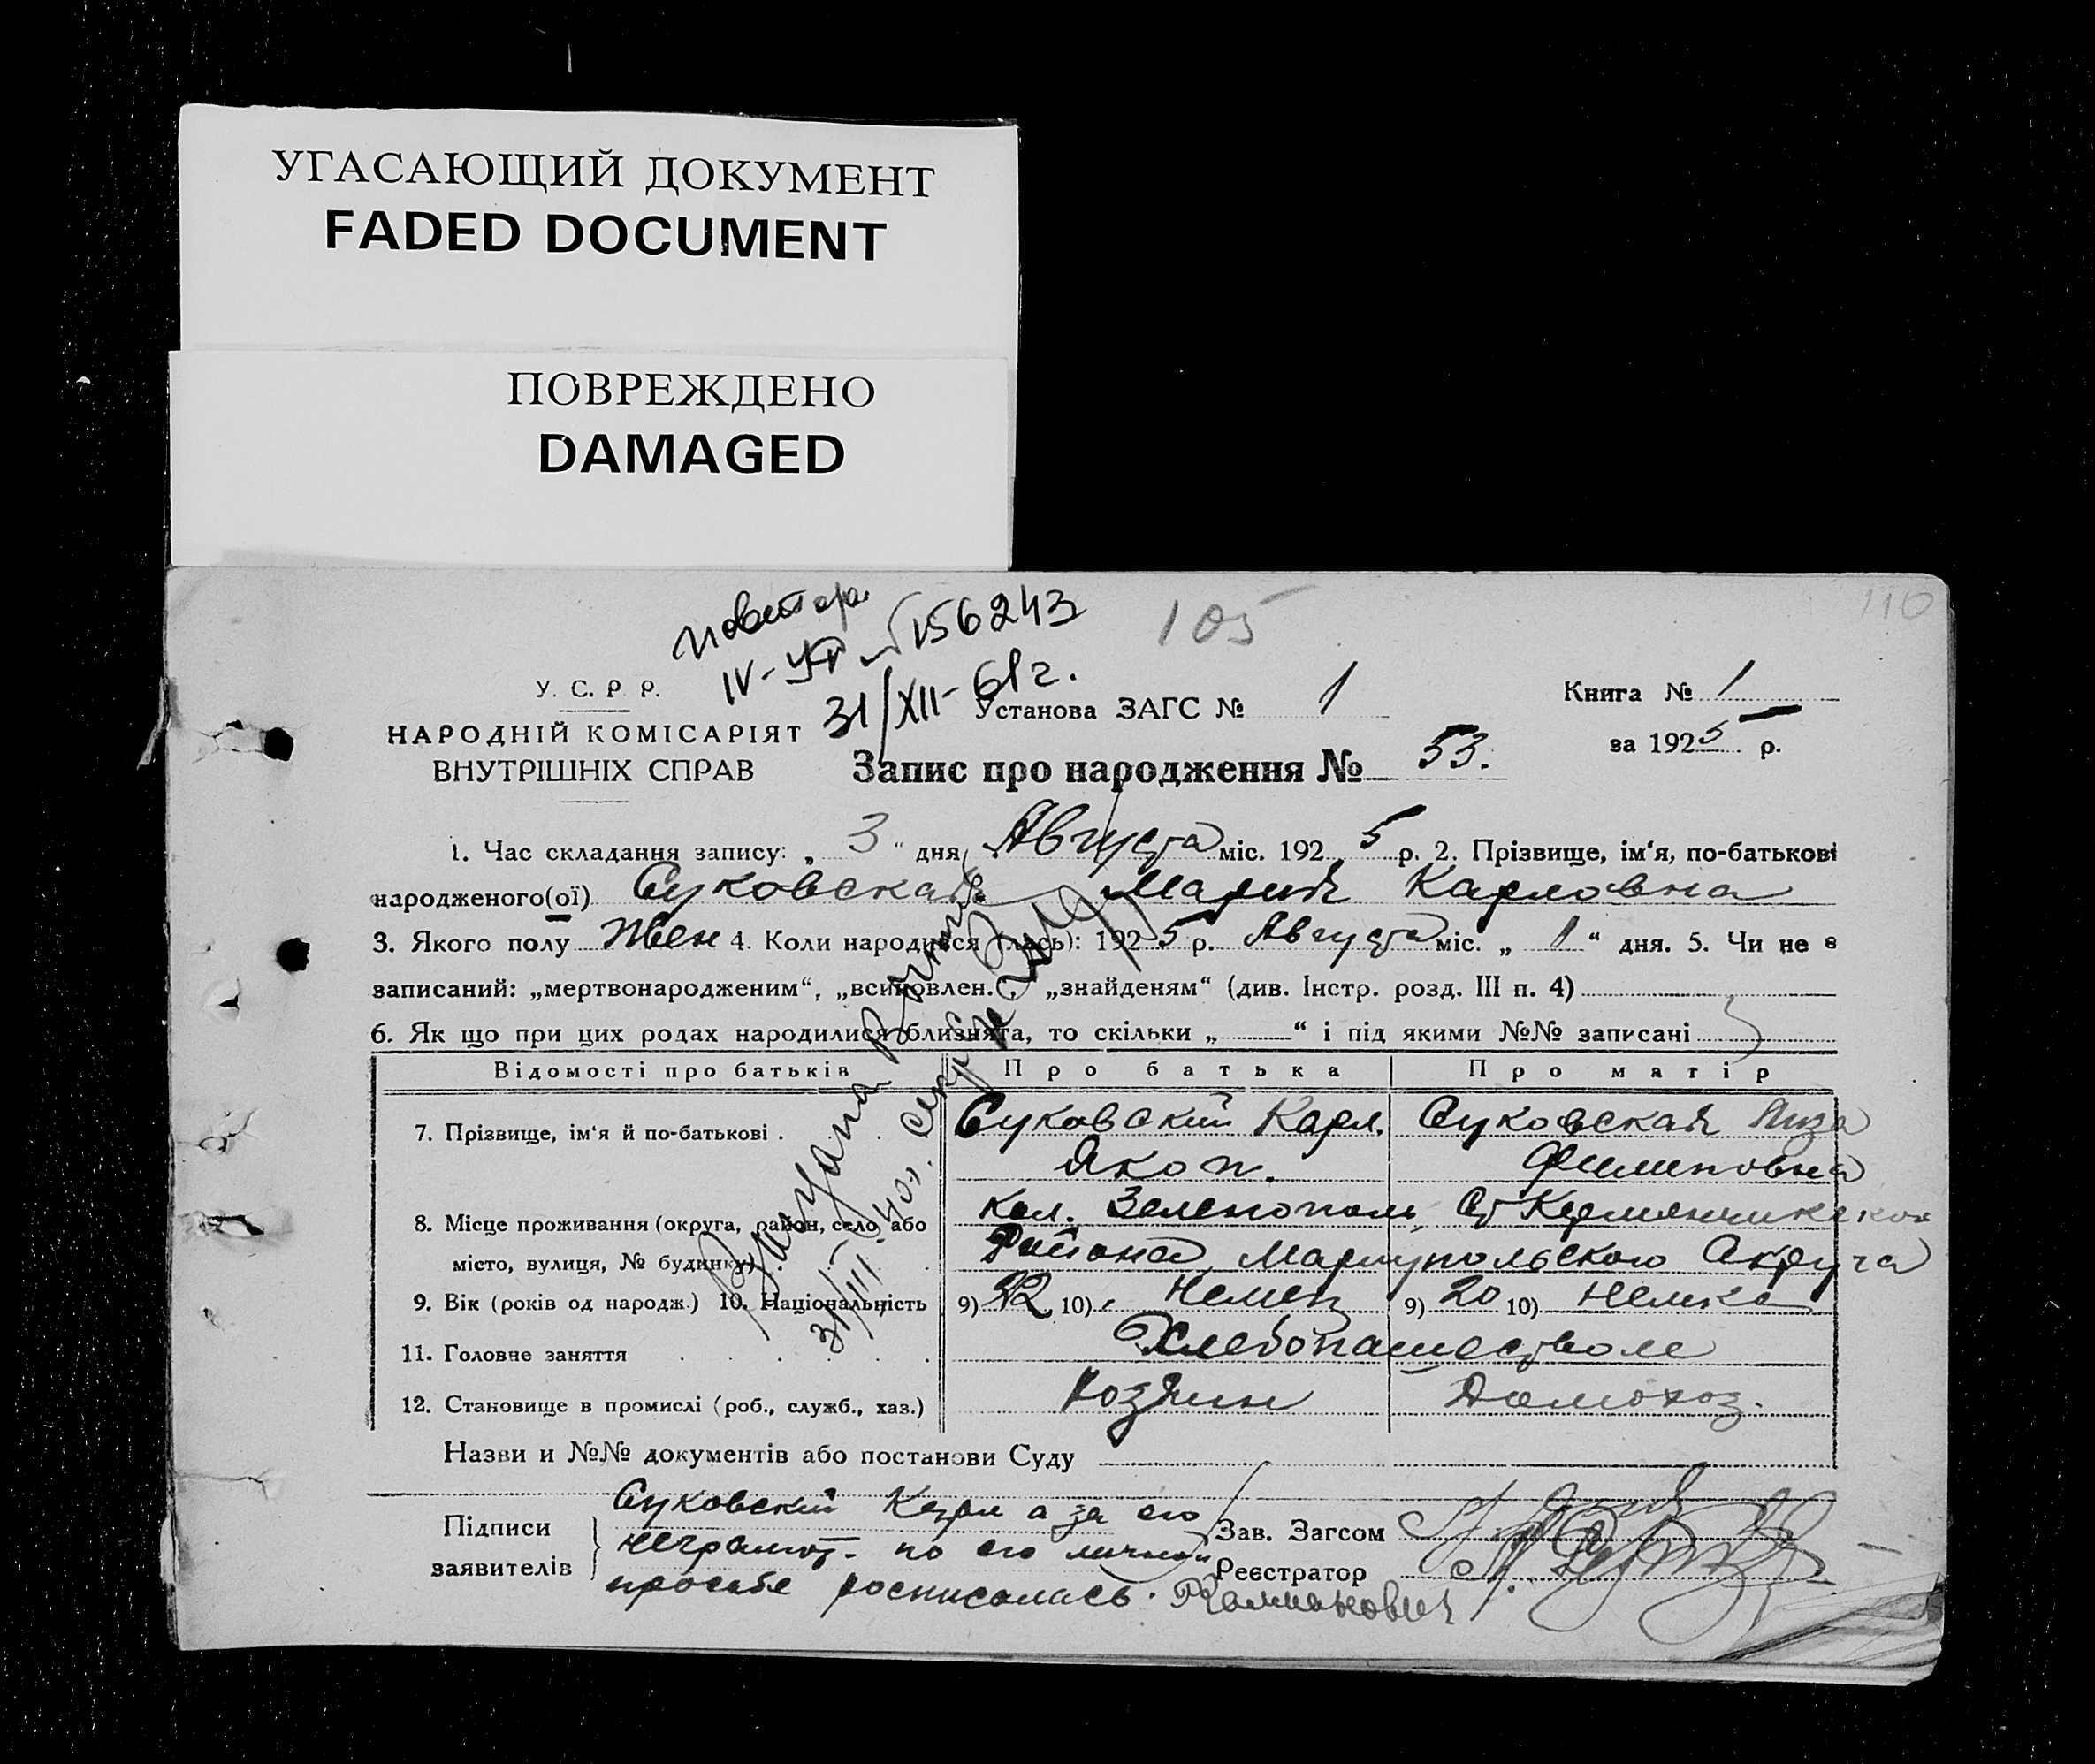 УГАСАЮЩИЙ ДОКУМЕНТ
FADED DOCUMENT
ПОВРЕЖДЕНО
DAMAGED
110
105
IV-УР № 156243
31/XII-61г.
У. С. Р Р.
НАРОДНІЙ КОМІСАРІЯТ
ВНУТРІШНІХ СПРАВ
Установа ЗАГС № 1
Книга № 1
за 1925 р.
Запис про народження № 53.
1. Час складання запису: „ 3 " дня Августа міс. 1925 р. 2. Прізвище, ім'я, по-батькові
народженого(ої) Суковская Мария Карловна
3. Якого полу Жен 4. Коли народився (лась): 1925 р. Августа міс. „ 1 " дня. 5. Чи не є
записаний: „мертвонародженим", „всиновлен.", „знайденям" (див. Інстр. розд. III п. 4)
6. Як що при цих родах народилися близнята, то скільки „ " і під якими №№ записані
Відомості про батьків Про батька Про матір
7. Прізвище, ім'я й по-батькові . Суковский Карл. Суковская Лиза
Якоп. Филиповна
8. Місце проживання (округа, район, село або кол. Зеленополь, Ст Керменчикског
місто, вулиця, № будинку) . Района Мариупольского Округа
9. Вік (років од народж.) 10. Національність 9) 22 10) Немец 9) 20 10) Немка
11. Головне заняття Хлебопашеством
12. Становище в промислі (роб., служб., хаз.) Хозяин Домохоз.
Назви и №№ документів або постанови Суду
Підписи
заявителів
Суковский Карл а за его
неграмот. по его личной
просьбе росписалась.
Зав. Загсом
Реєстратор
31/III 40г.